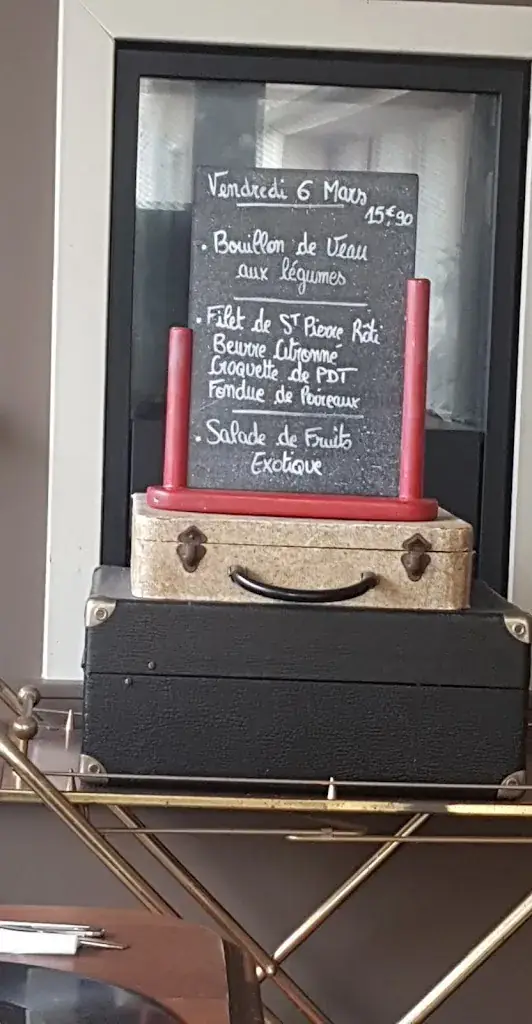 Vendredi 6 Mars
15€90
• Bouillon de Veau
aux légumes
• Filet de ST Pierre Rôti
Beurre Citronné
Croquette de PDT
Fondue de Poireaux
• Salade de Fruits
Exotique